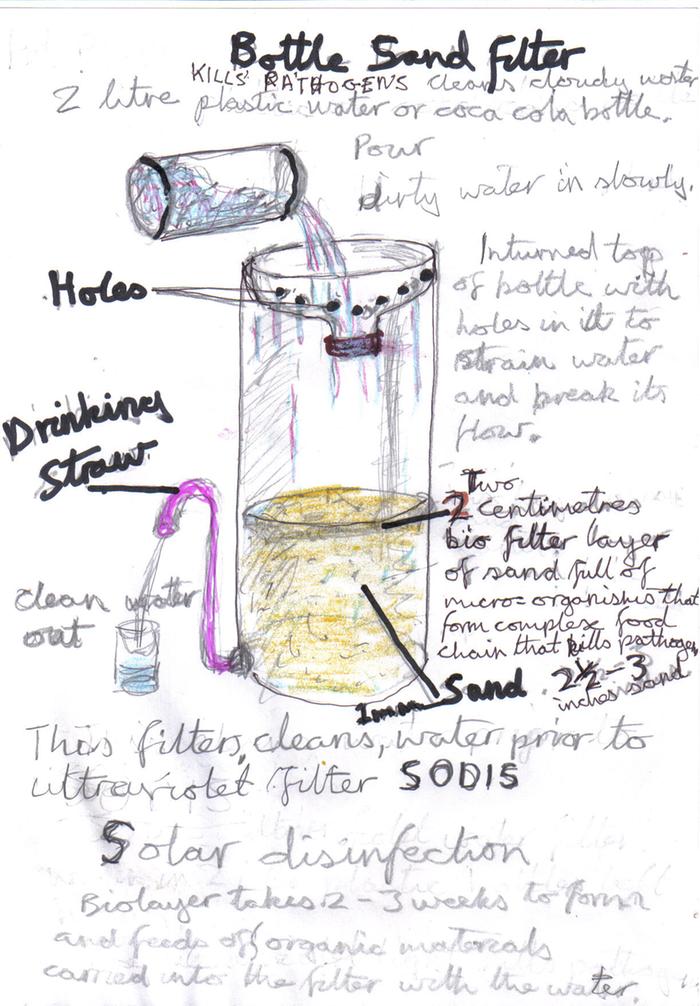 Bottle Sand filter
KILLS PATHOGENS cleans cloudy water
2 litre plastic water or coca cola bottle.
Pour
dirty water in slowly.
Holes
Inturned top
of bottle with
holes in it to
strain water
and break its
flow.
Drinking
Straw
Two
2 centimetres
bio filter layer
of sand full of
micro=organisms that
form complex food
chain that kills pathogens
clean water
out
Sand 2½-3
1mm inches sand
This filters, cleans, water prior to
ultraviolet filter SODIS
Solar disinfection
Biolayer takes 2-3 weeks to form
and feeds off organic materials
carried into the filter with the water.